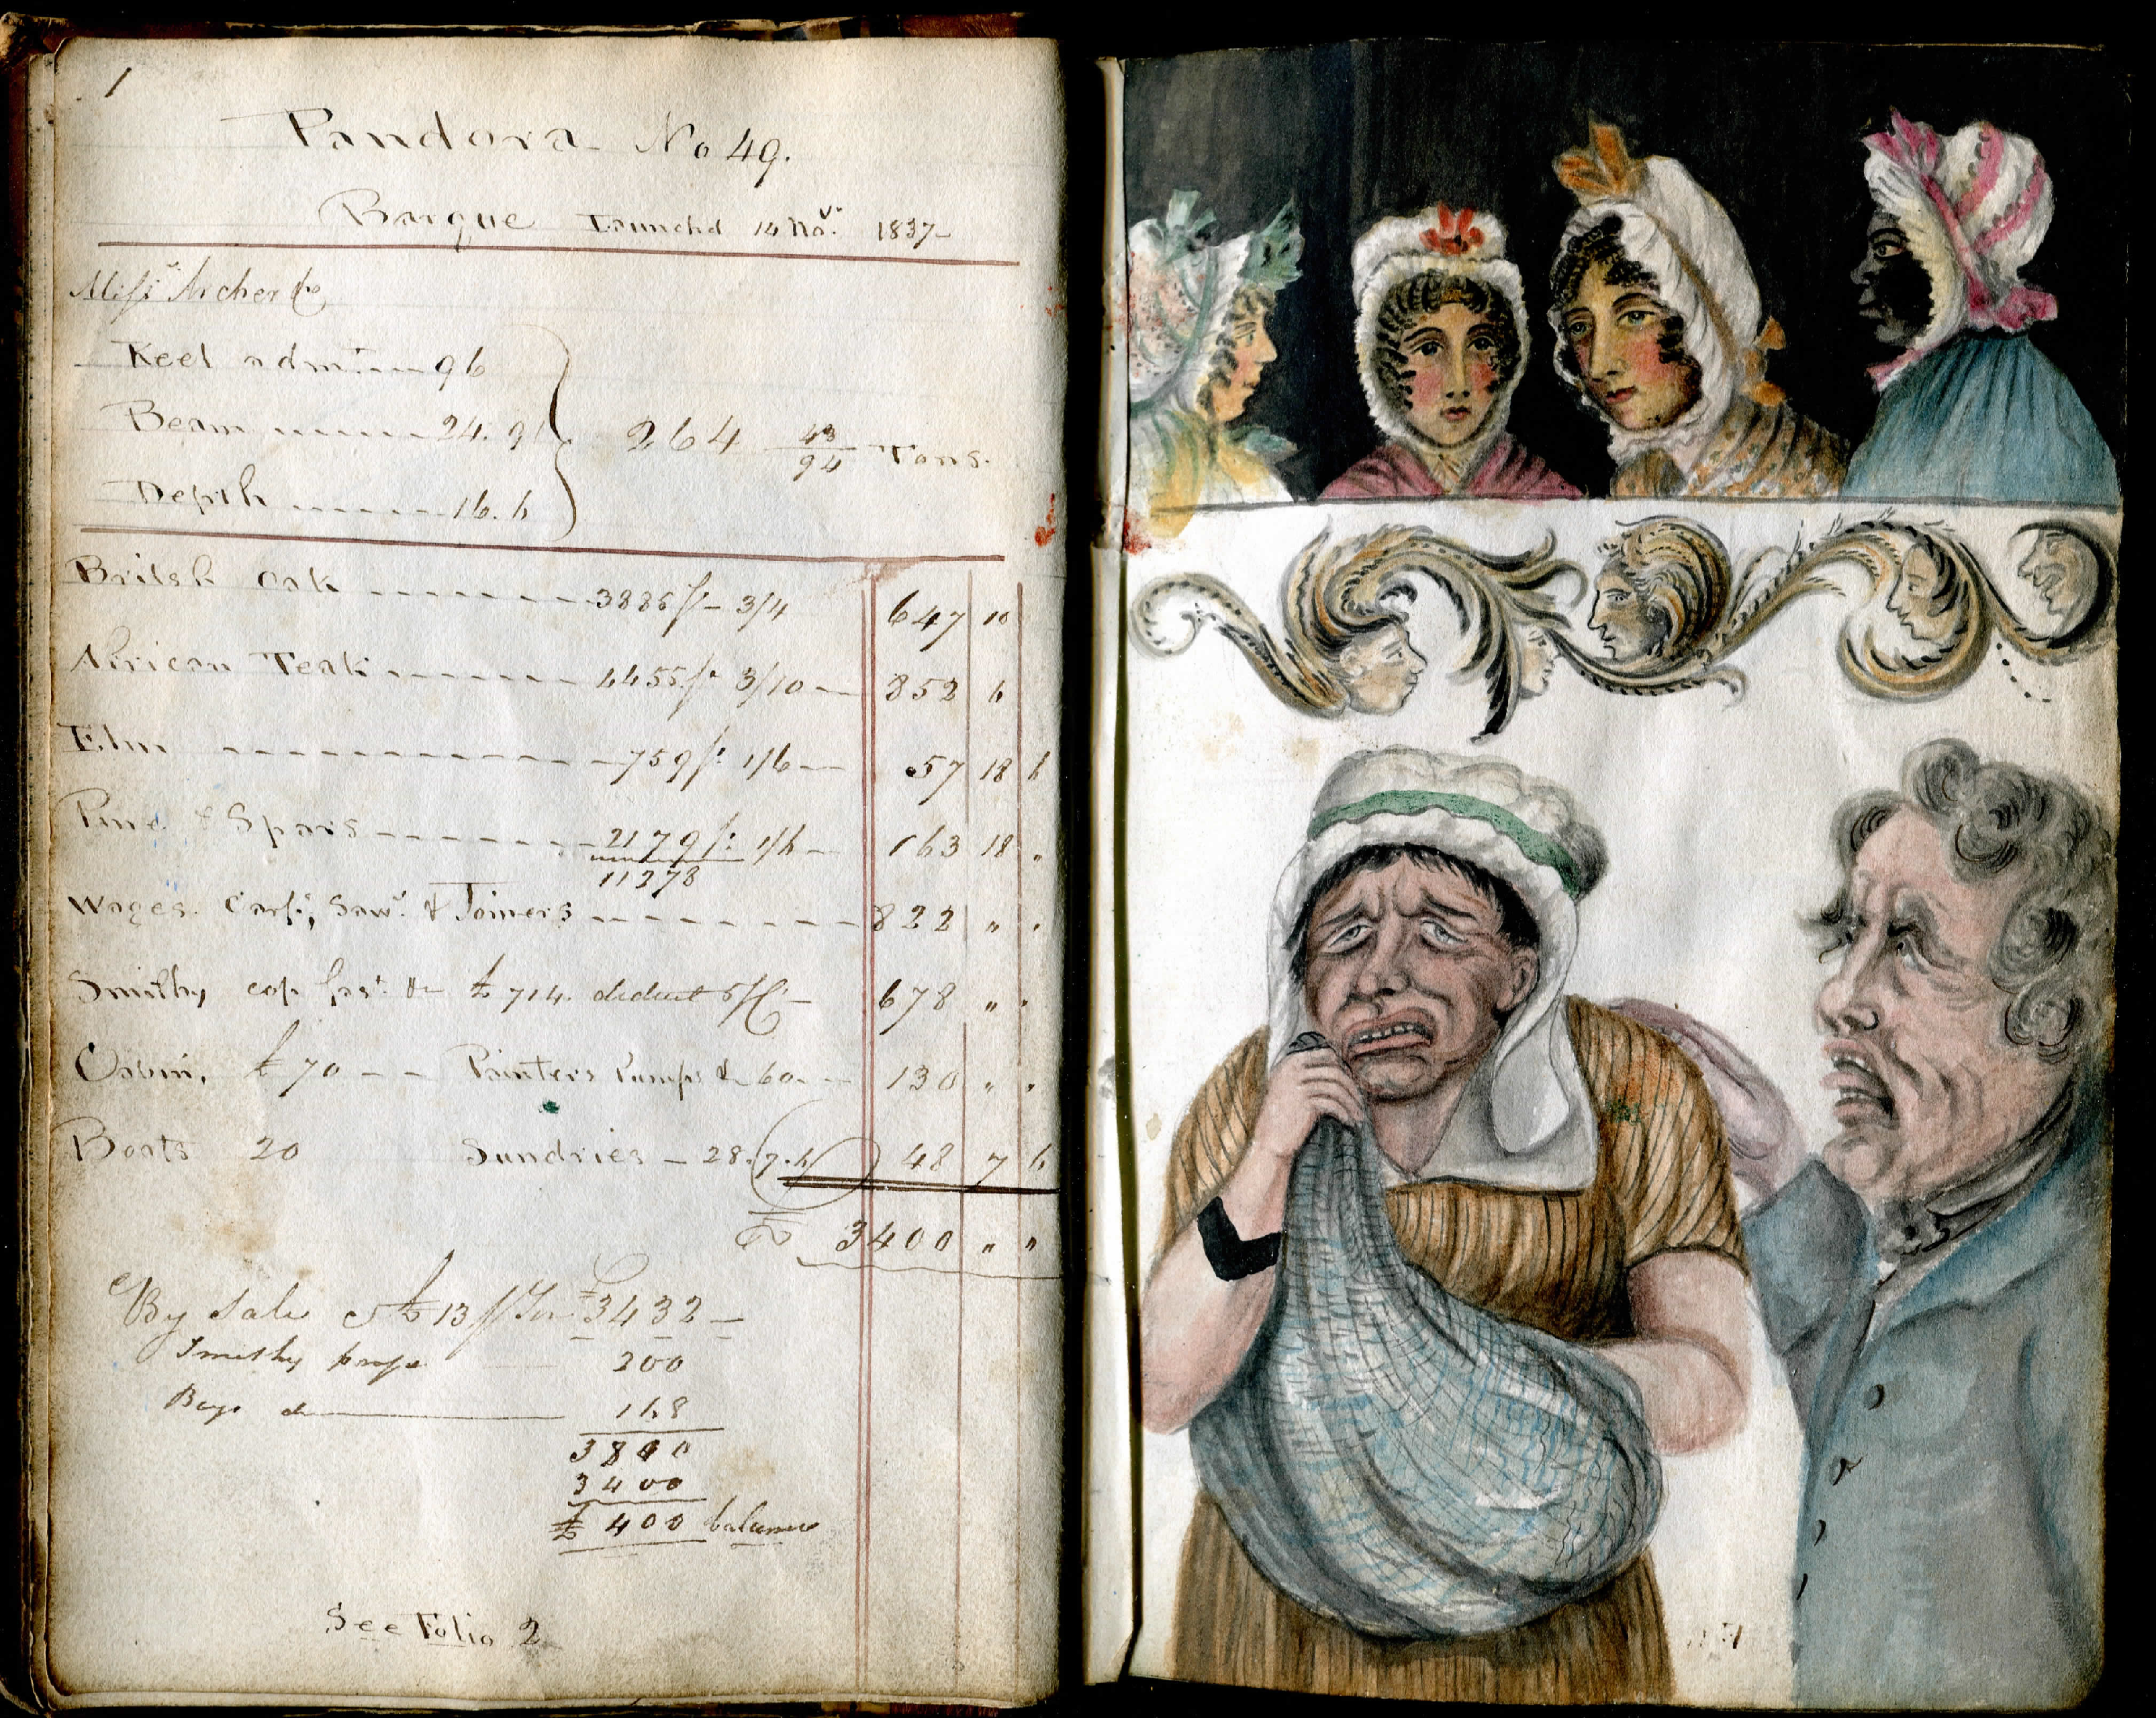 1
Pandora No 49.
Barque Launchd 14 Nov. 1837
Miss Archer &Co
Keel adm 96
Beam 24.9½ 264 43/94 Tons.
Depth 16.6
Britsh Oak 3885 ft 3/4 647 10
African Teak 4455 ft 3/10 852 6
Elm 759 ft 1/6 57 18 6
Pine & Spars 2179 ft 1/6 163 18 "
11378
Wages. Carp., Saw. & Joiners 822 " "
Smithy cop fast &c £714. deduct 5 p C 678 " "
Cabin, £70 Painters Pumps &c 60 130 " "
Boats 20 Sundries 28.7.6 48 7 6
£ 3400 " "
By Sale £13 p Ton £3432
Smithy 200
168
3800
3400
£ 400 balance
See Folio 2